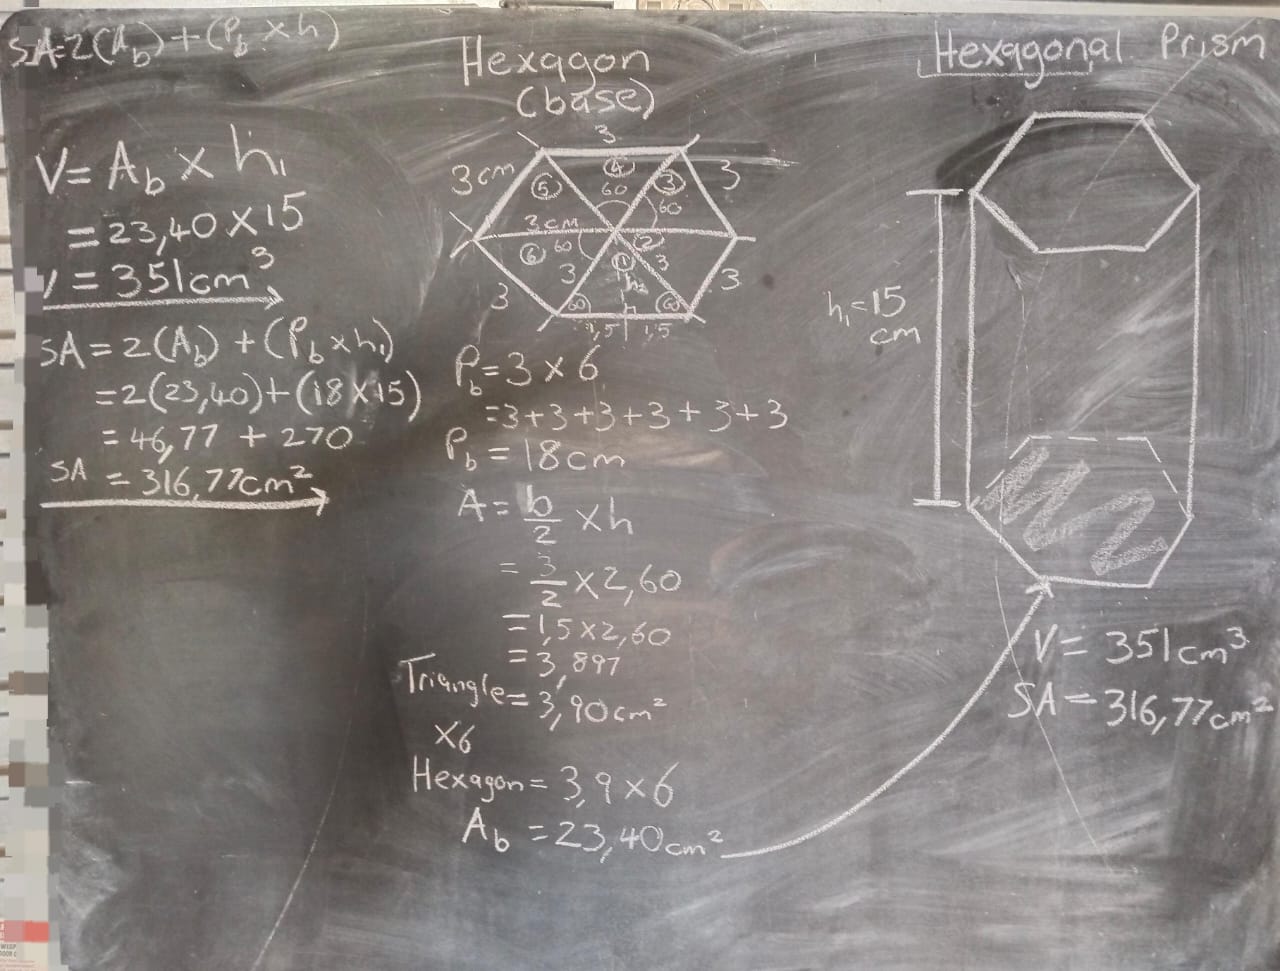 SA=2(Ab)+(Pb×h)
V=Ab×h₁
=23,40×15
V=351cm³
SA=2(Ab)+(Pb×h₁)
=2(23,40)+(18×15)
=46,77+270
SA=316,77cm²
Hexagon
(base)
3
3cm
⑤
④
60
③
3
60
3cm
⑥
60
②
①
3
3
3
3
h₂
60
60
1,5
1,5
Pb=3×6
=3+3+3+3+3+3
Pb=18cm
A=b/2×h
=3/2×2,60
=1,5×2,60
=3,897
Triangle=3,90cm²
×6
Hexagon=3,9×6
Ab=23,40cm²
Hexagonal Prism
h₁=15
cm
V=351cm³
SA=316,77cm²